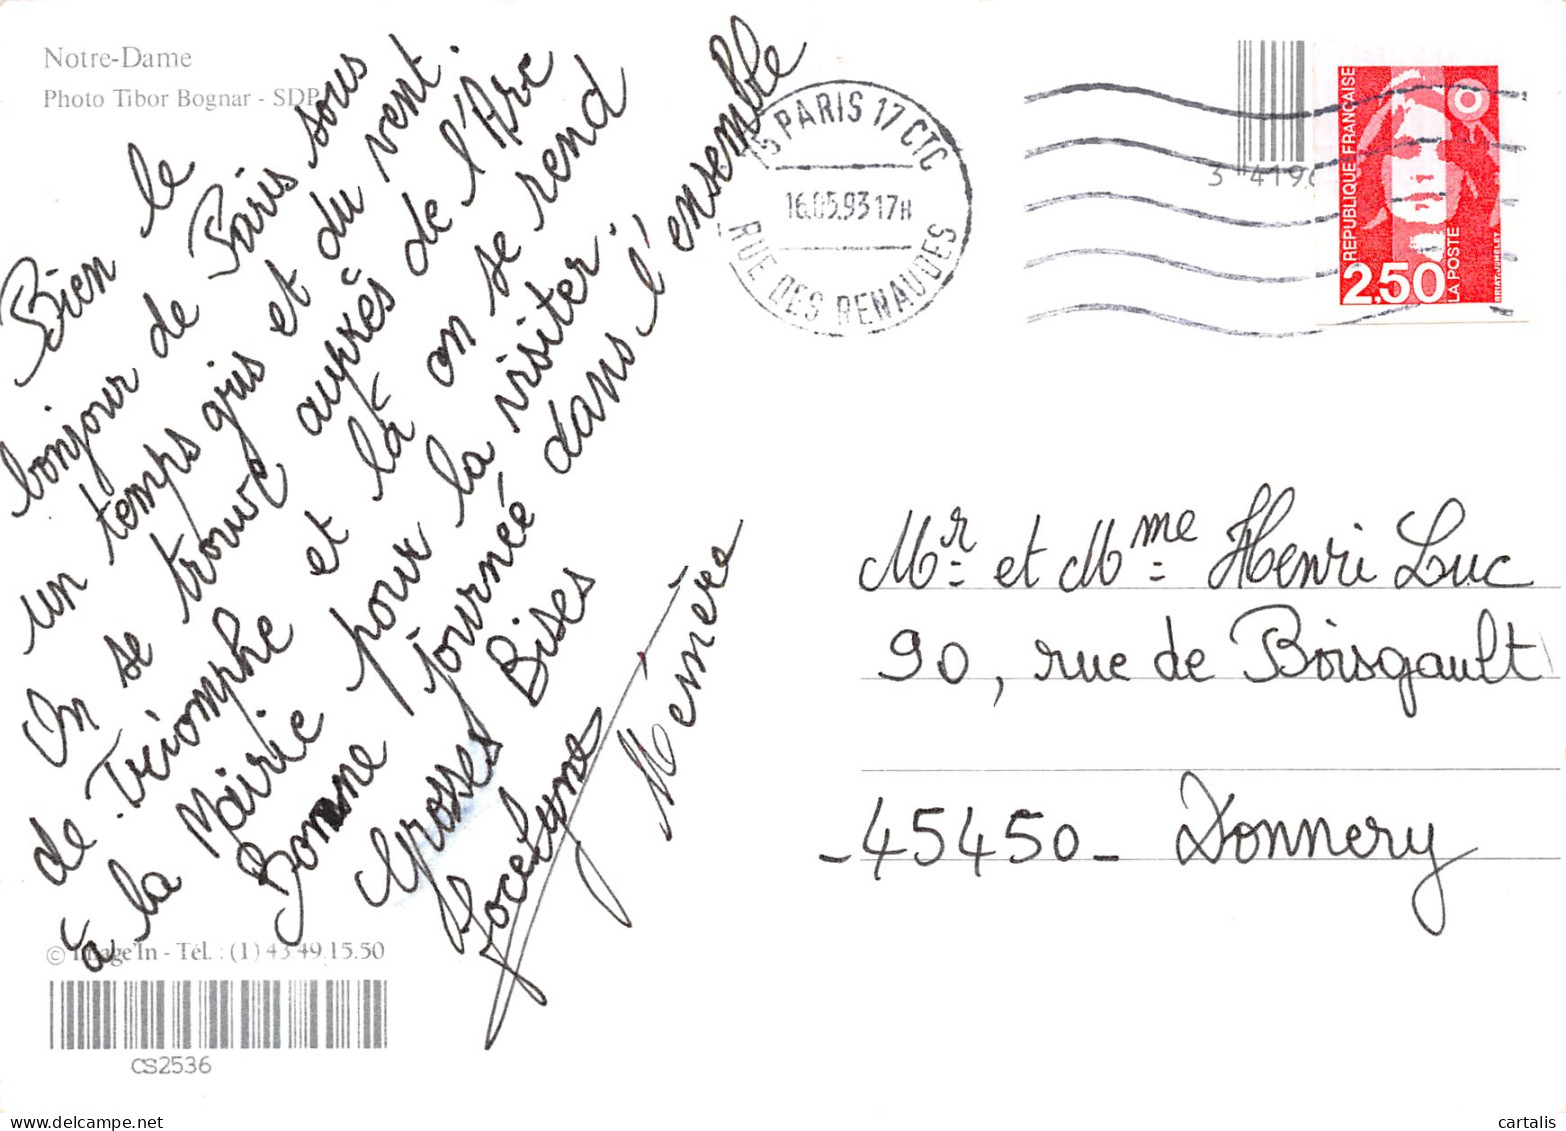 Notre-Dame
Photo Tibor Bognar - SDP
Bien le
bonjour de Paris sous
un temps gris et du vent.
On se trouve auprès de l'Arc
de Triomphe et là on se rend
à la Mairie pour la visiter.
Bonne journée dans l'ensemble
Grosses Bises
Jocelyne
Mémère
75 PARIS 17 CTC
16.05.93 17H
RUE DES RENAUDES
3 419
REPUBLIQUE FRANÇAISE
2,50
LA POSTE
BRIAT-JUMELET
Mr et Mme Henri Luc
90, rue de Boisgault
- 45450 - Donnery
© Image'In - Tél. : (1) 43 49.15.50
CS2536
cartalis